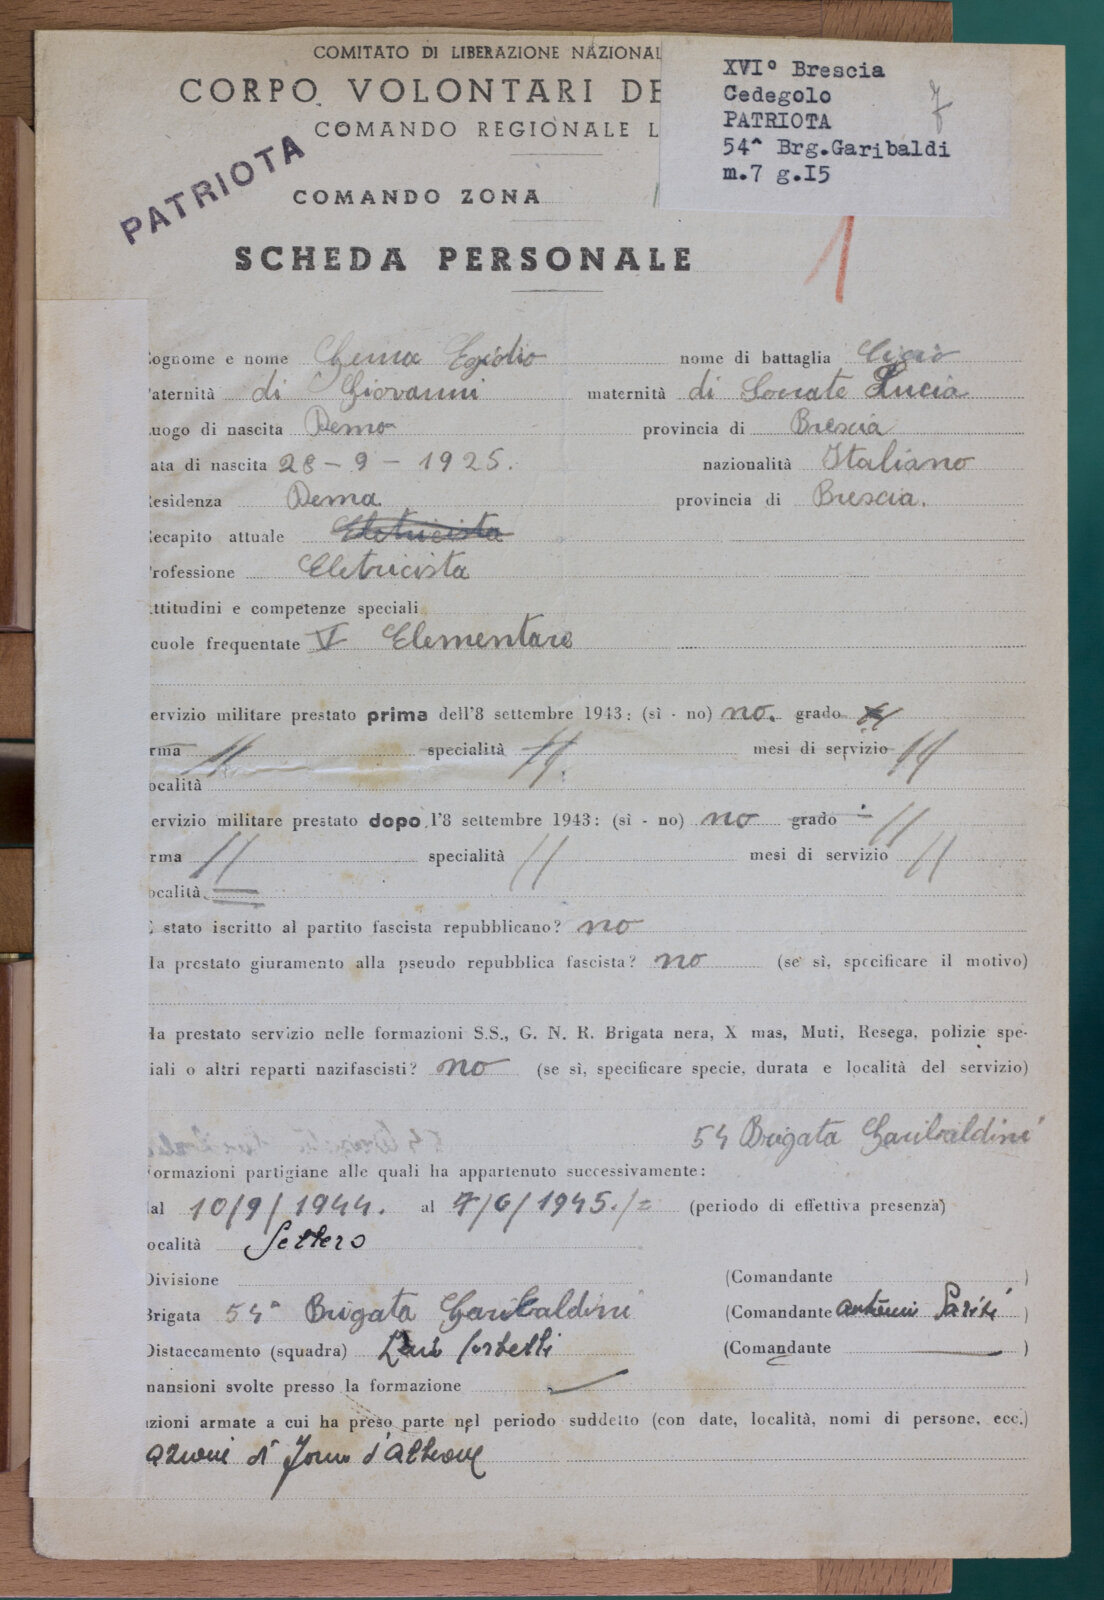 COMITATO DI LIBERAZIONE NAZIONAL
CORPO VOLONTARI DE
COMANDO REGIONALE L
XVI° Brescia
Cedegolo
PATRIOTA
54^ Brg.Garibaldi
m.7 g.I5
7
PATRIOTA
COMANDO ZONA
1
SCHEDA PERSONALE
ognome e nome Gema Egidio nome di battaglia Cicio
aternità di Giovanni maternità di Socrate Lucia
uogo di nascita Demo provincia di Brescia
ata di nascita 28-9-1925. nazionalità Italiano
esidenza Demo provincia di Brescia.
ecapito attuale Eletricista
rofessione Eletricista
ttitudini e competenze speciali
cuole frequentate V Elementare
ervizio militare prestato prima dell'8 settembre 1943: (sì - no) no. grado
rma // specialità // mesi di servizio //
ocalità
ervizio militare prestato dopo l'8 settembre 1943: (sì - no) no grado //
rma // specialità // mesi di servizio //
ocalità =
stato iscritto al partito fascista repubblicano? no
Ha prestato giuramento alla pseudo repubblica fascista? no (se sì, specificare il motivo)
Ha prestato servizio nelle formazioni S.S., G. N. R. Brigata nera, X mas, Muti, Resega, polizie spe-
iali o altri reparti nazifascisti? no (se sì, specificare specie, durata e località del servizio)
54 Brigata Garibaldini
ormazioni partigiane alle quali ha appartenuto successivamente:
al 10/9/1944. al 7/6/1945./= (periodo di effettiva presenza)
ocalità
Divisione (Comandante )
Brigata 54ª Brigata Garibaldini (Comandante )
Distaccamento (squadra) (Comandante )
mansioni svolte presso la formazione
zioni armate a cui ha preso parte nel periodo suddetto (con date, località, nomi di persone, ecc.)
azioni di